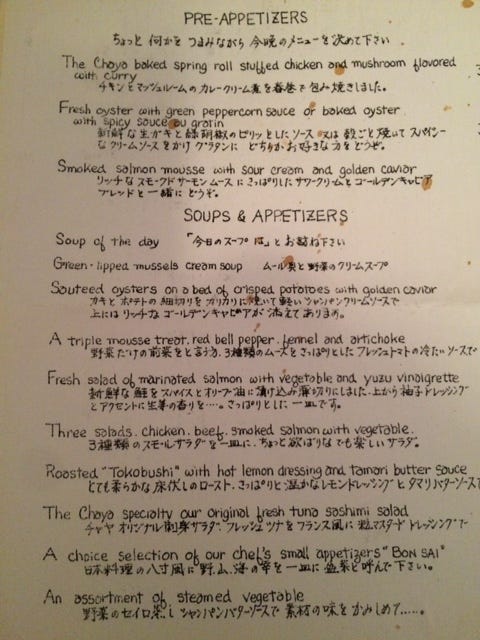 PRE-APPETIZERS
ちょっと 何かを つまみながら 今晩のメニューを 決めて下さい
The Chaya baked spring roll stuffed chicken and mushroom flavored
with curry
チキンとマッシュルームの カレークリーム煮を春巻で包み焼きしました。
Fresh oyster with green peppercorn sauce or baked oyster
with spicy sauce au gratin
新鮮な生ガキと緑胡椒のピリッとした ソース 又は 殻ごと焼いて スパイシー
なクリームソースをかけ グラタンに どちらかお好きな方をどうぞ。
Smoked salmon mousse with sour cream and golden caviar
リッチなスモークドサーモン ムースに さっぱりした サワークリームと ゴールデンキャビア
ブレッドと一緒に どうぞ。
SOUPS & APPETIZERS
Soup of the day 「今日のスープは」とお訪ね下さい
Green-lipped mussels cream soup ムール貝と野菜のクリームスープ
Sauteed oysters on a bed of crisped potatoes with golden caviar
カキとポテトの細切りを カリカリに焼いて 軽いシャンパンクリームソースで
上にはリッチなゴールデンキャビアが 添えてあります。
A triple mousse treat, red bell pepper, fennel and artichoke
野菜だけの前菜を 3種類のムースを さっぱりとした フレッシュトマトの冷たいソースで
Fresh salad of marinated salmon with vegetable and yuzu vinaigrette
新鮮な鮭をスパイスとオリーブ油に漬け込み薄切りにしました。上から柚子ドレッシング
とアクセントに生姜の香りを…。さっぱりとした一皿です。
Three salads, chicken, beef, smoked salmon with vegetable.
3種類のスモールサラダを一皿に、ちょっと欲ばりなでも楽しいサラダ。
Roasted "Tokobushi" with hot lemon dressing and tamari butter sauce
とても柔らかな床伏しのロースト、さっぱりと温かなレモンドレッシングと タマリバターソースで
The Chaya specialty our original fresh tuna sashimi salad
チャヤ オリジナル刺身サラダ、フレッシュ ツナを フランス風に 粒マスタード ドレッシングで
A choice selection of our chef's small appetizers "BON SAI"
日本料理の八寸風に野、山、海の幸を一皿に 盆菜と呼んで下さい。
An assortment of steamed vegetable
野菜のセイロ蒸し シャンパンバターソースで 素材の味をかみしめて……。